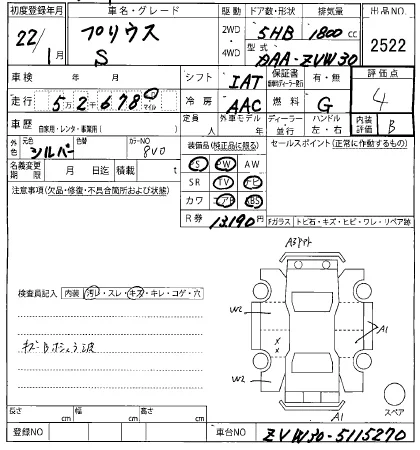 初度登録年月 車名・グレード 駆動 ドア数・形状 排気量 出品NO
22/1月 プリウス S 2WD 4WD 5HB 1800cc 2522
型式 DAA-ZVW30
車検 年 月 シフト IAT 保証書 有・無 評価点
走行 5万2千678 マイル 冷房 AAC 燃料 G 4
車歴 自家用・レンタ・事業用( ) 外車モデル 年 ディーラー・並行 ハンドル 左・右 内装評価 B
外色 元色 シルバー 色替 カラーNO 8V0 装備品(純正品に限る) セールスポイント(正常に作動するもの)
名義変更期限 月 日迄 積載 t PS PW AW
注意事項(欠品・修復・不具合箇所および状態) SR TV ナビ
カワ エアB ABS
R券 13,190円 Fガラス トビ石・キズ・ヒビ・ワレ・リペア跡
A3
検査員記入 内装 汚れ・スレ・キズ・キレ・コゲ・穴
W2
A1
W2
A1
スペア
長さ cm 幅 cm 高さ cm
登録NO 車台NO ZVW30-5115270